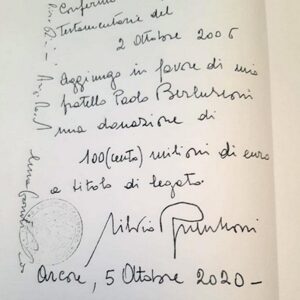 Confermo
Testamentarie del
2 Ottobre 2006
Aggiungo in favore di mio
fratello Paolo Berlusconi
una donazione di
100 (cento) milioni di euro
a titolo di legato.
Silvio Berlusconi
Arcore, 5 Ottobre 2020-